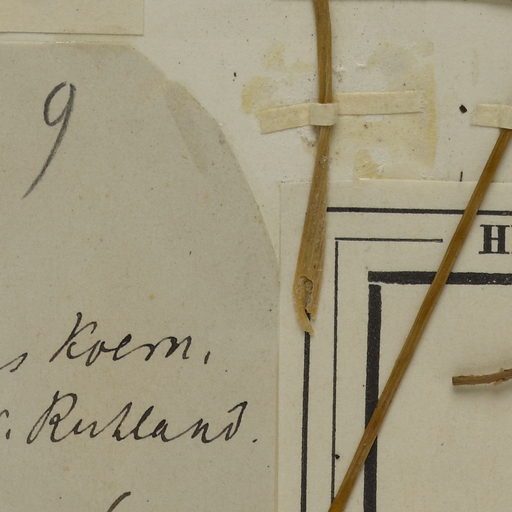 9
s Koern.
. Ruhland.
H